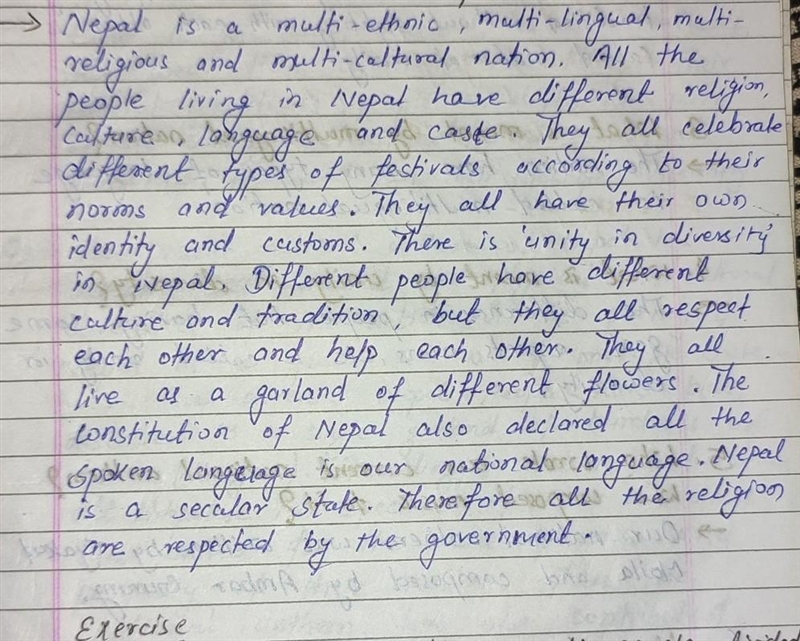 → Nepal is a multi-ethnic, multi-lingual, multi-
religious and multi-cultural nation. All the
people living in Nepal have different religion,
culture, language and caste. They all celebrate
different types of festivals according to their
norms and values. They all have their own
identity and customs. There is 'unity in diversity'
in Nepal. Different people have different
culture and tradition, but they all respect
each other and help each other. They all
live as a garland of different flowers. The
constitution of Nepal also declared all the
spoken language is our national language. Nepal
is a secular state. Therefore all the religion
are respected by the government.
Exercise